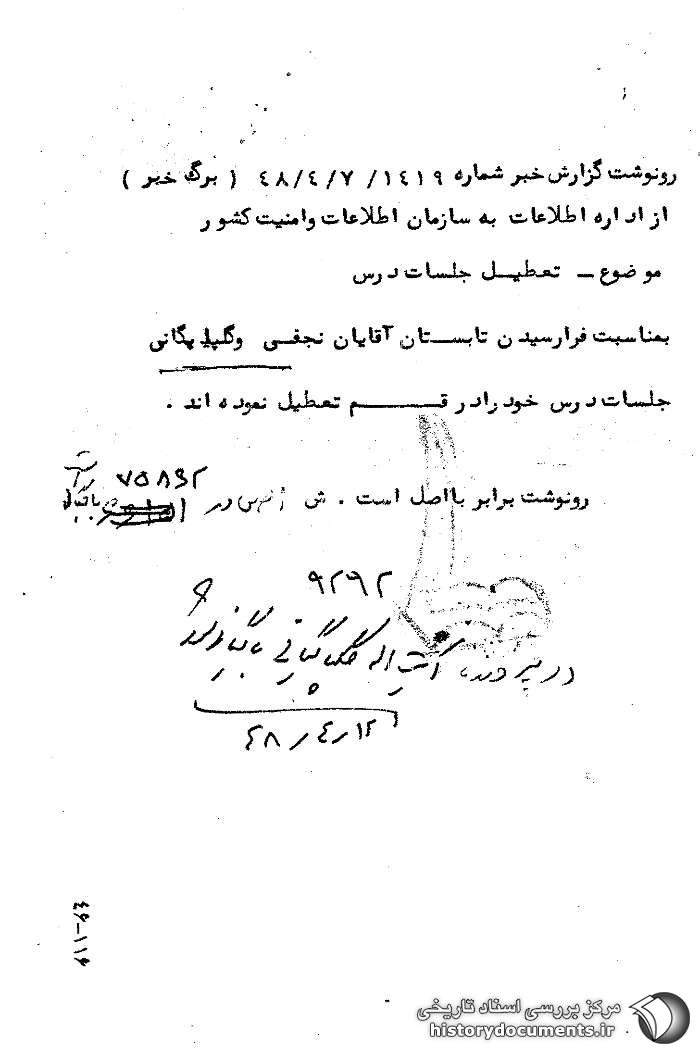 رونوشت گزارش خبر شماره ۱٤۱۹/ ٤۸/٤/۷ ( برگ خبر )
از اداره اطلاعات به سازمان اطلاعات وامنیت کشور
موضوع ــ تعطیل جلسات درس
بمناسبت فرارسیدن تابستان آقایان نجفی وگلپایگانی
جلسات درس خود رادر قــم تعطیل نموده اند .
۷۵۸۹۲
رونوشت برابر بااصل است . ش
۹۲۹۲
در پرونده آیت اله گلپایگانی بایگانی شود
٤۸/٤/۱۲
مرکز بررسی اسناد تاریخی
historydocuments.ir